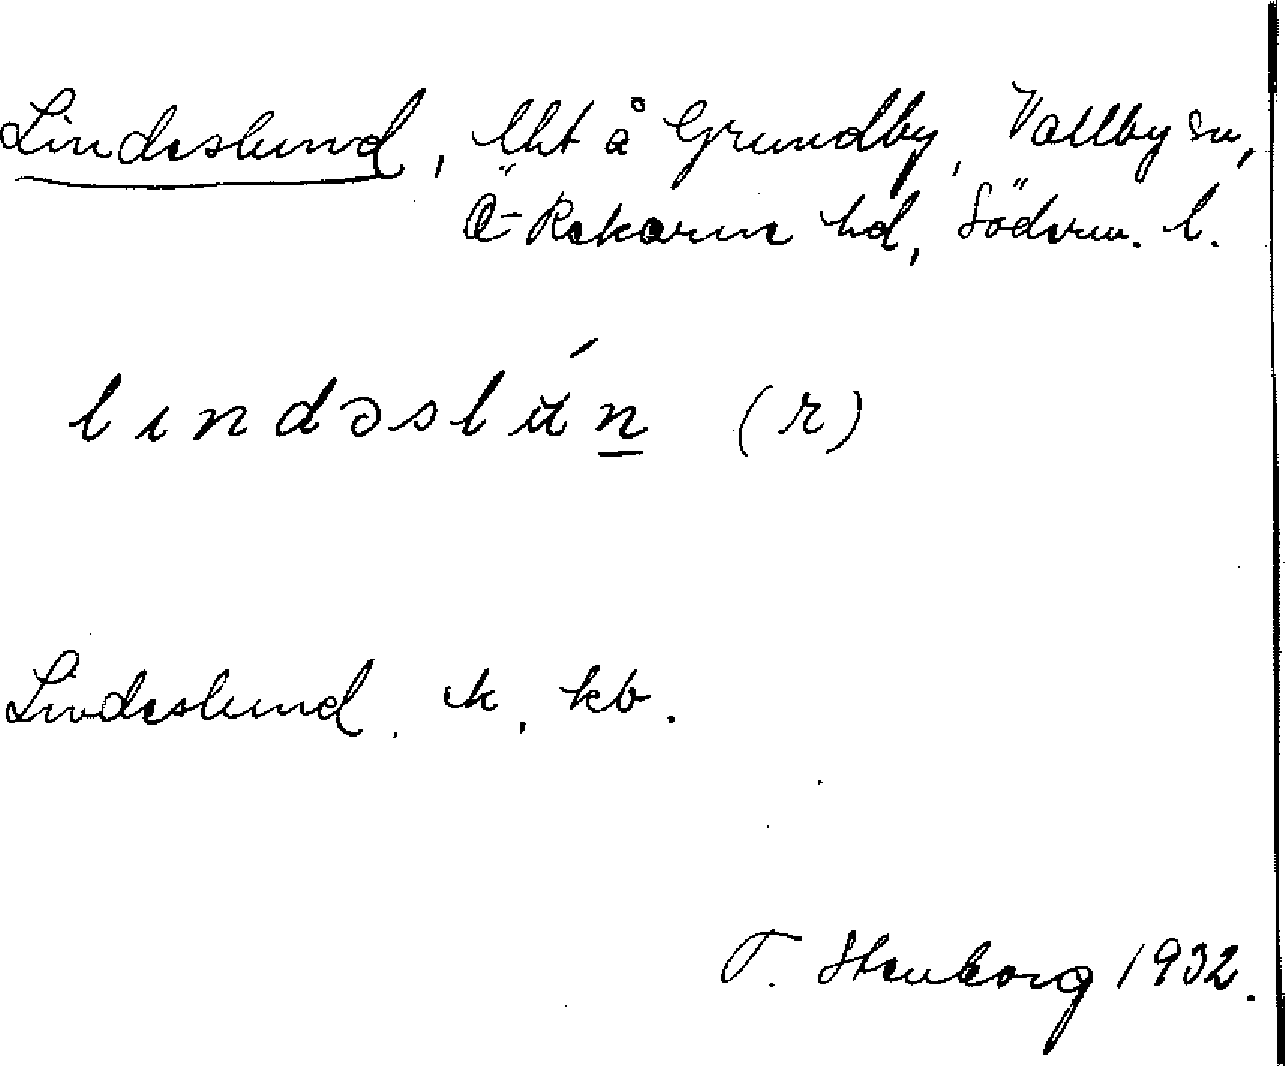 Lindeslund, lht å Grundby, Vallby sn,
Ö-Rekarne hd, Söderm. l.
lındəslún (r)
Lindeslund. ek, kb.
T. Stenborg 1932.